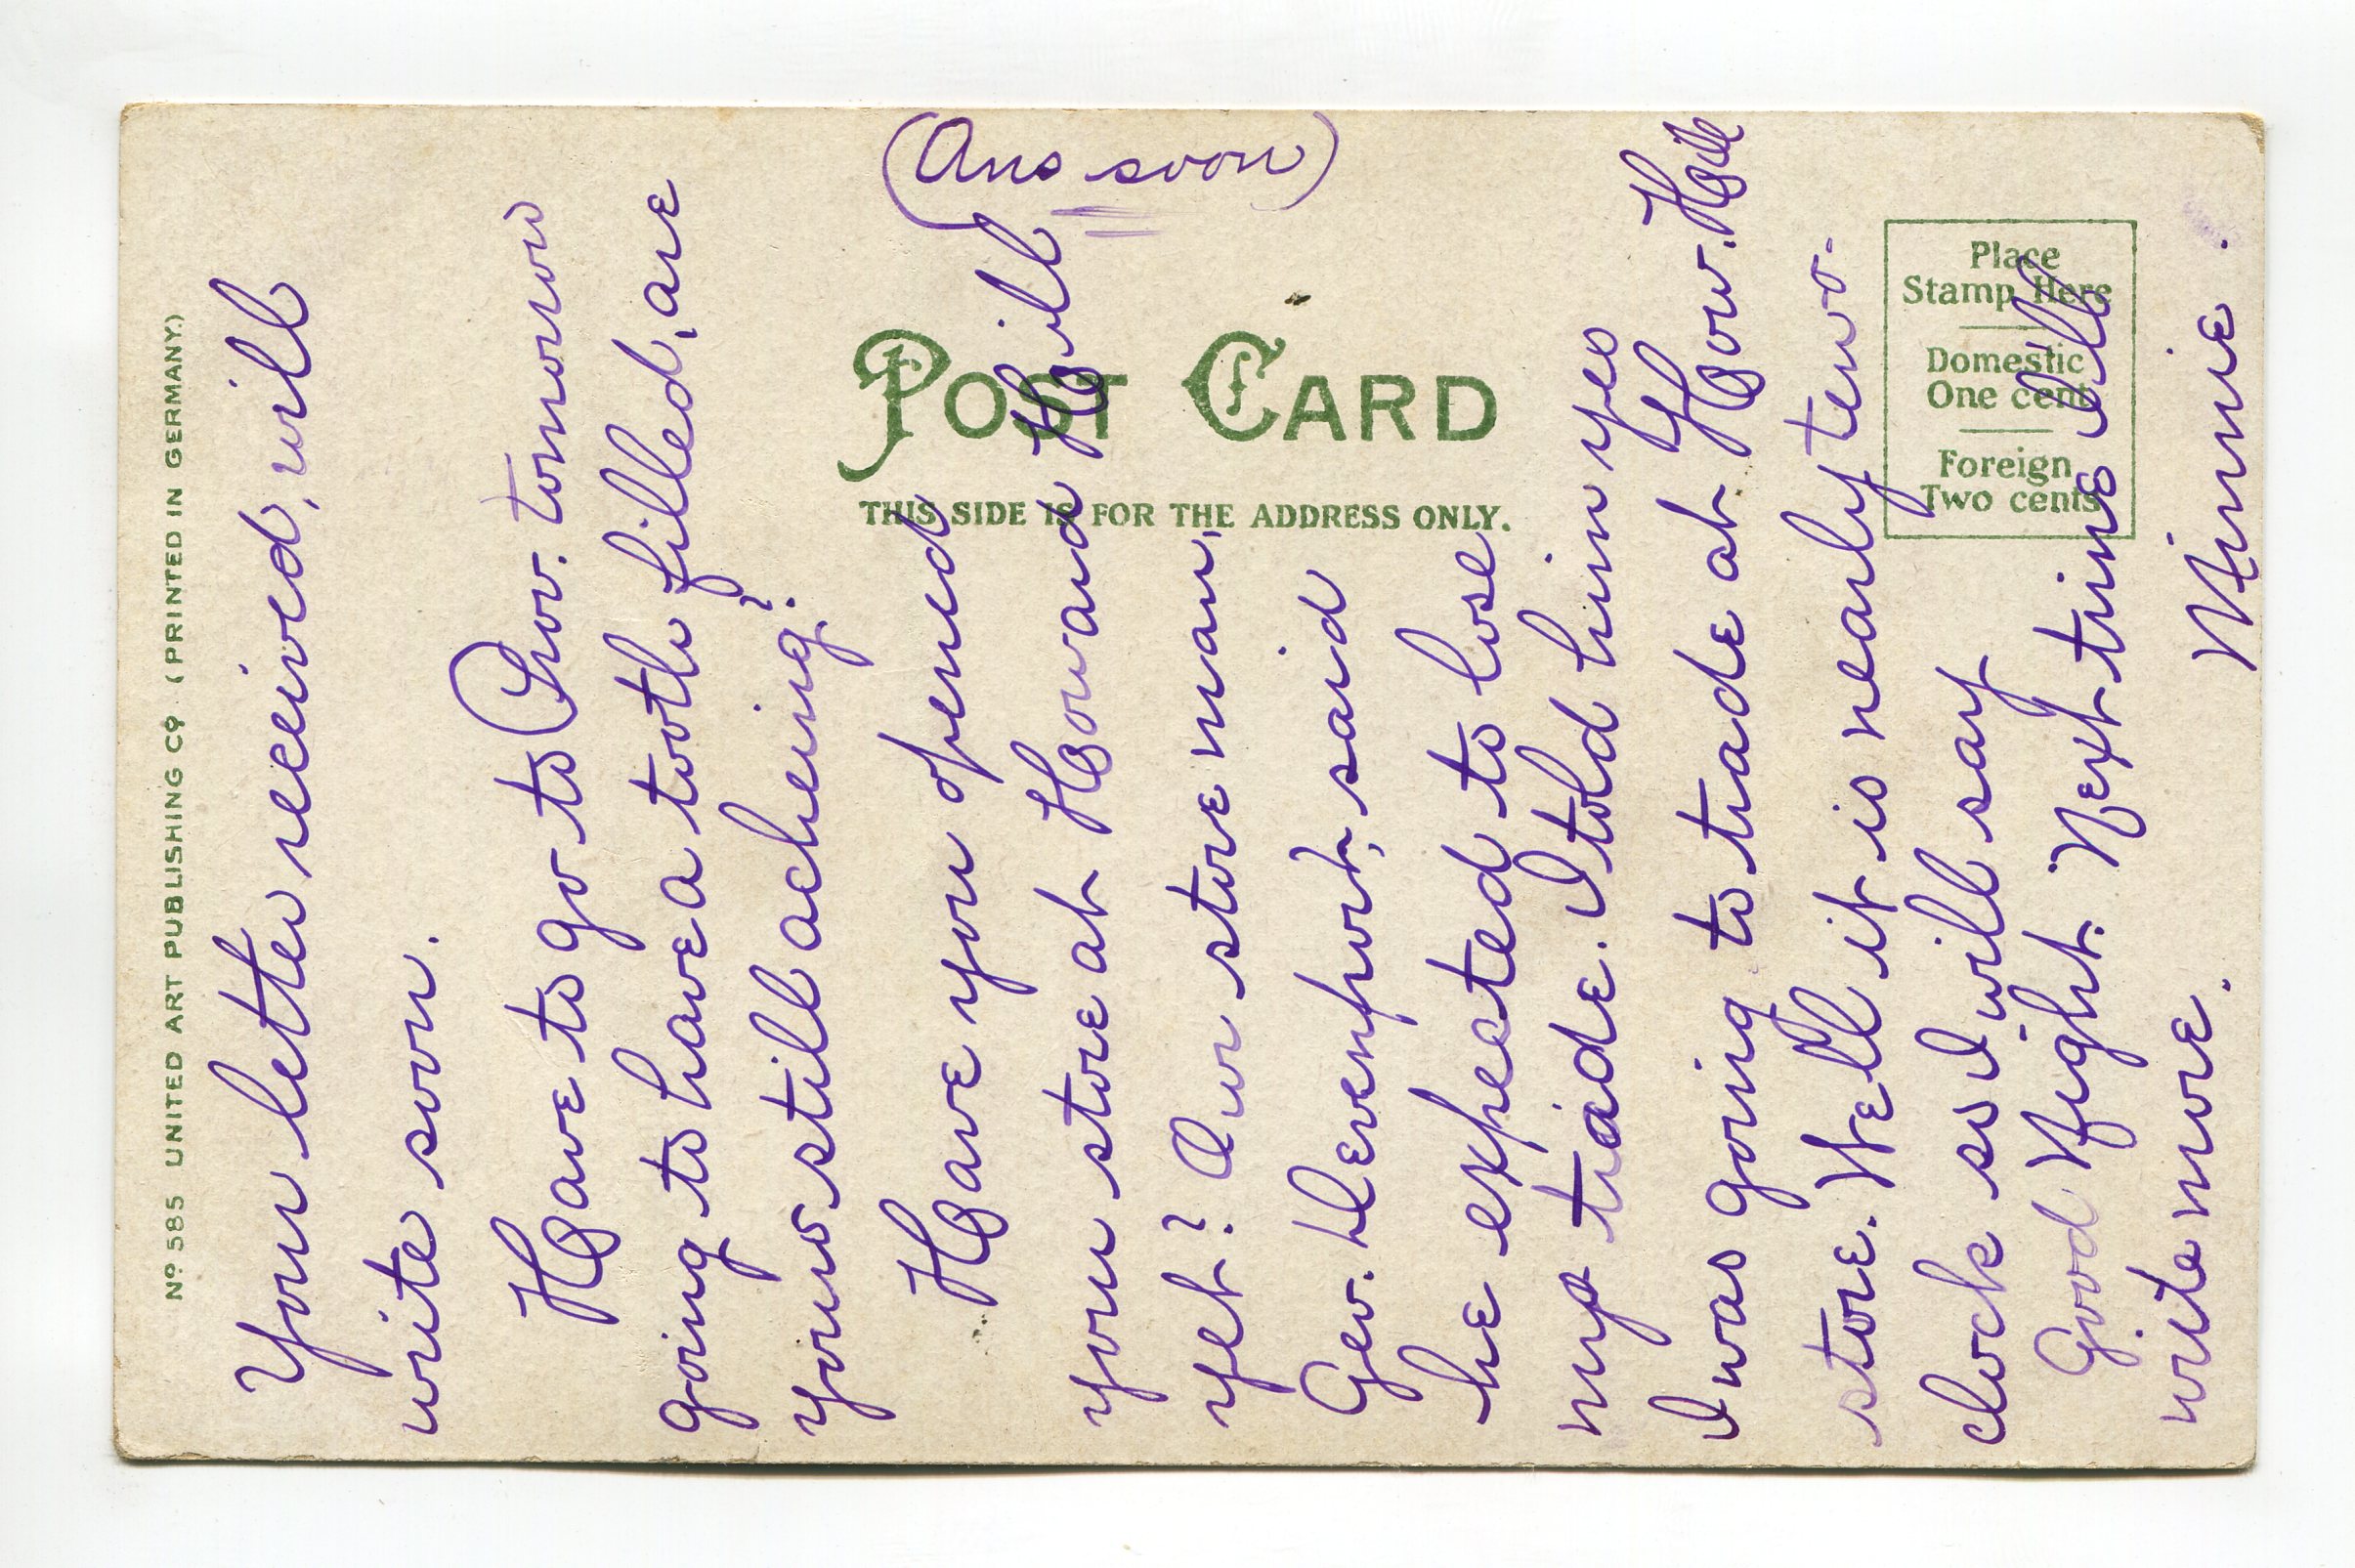 No 585 UNITED ART PUBLISHING CO. (PRINTED IN GERMANY.)
POST CARD
THIS SIDE IS FOR THE ADDRESS ONLY.
Place
Stamp Here
Domestic
One cent
Foreign
Two cents
(Ans soon)
Your letter received, will
write soon.
Have to go to Prov. tomorrow
going to have a tooth filled, are
yours still acheing?
Have you opened
your store at Howard Hill
yet? Our store man,
Geo. Devenport, said
he expected to lose
my trade. I told him yes
I was going to trade at How. Hill
store. Well it is nearly ten o-
clock so I will say
Good Night. Next time I'll
write more.
Minnie.